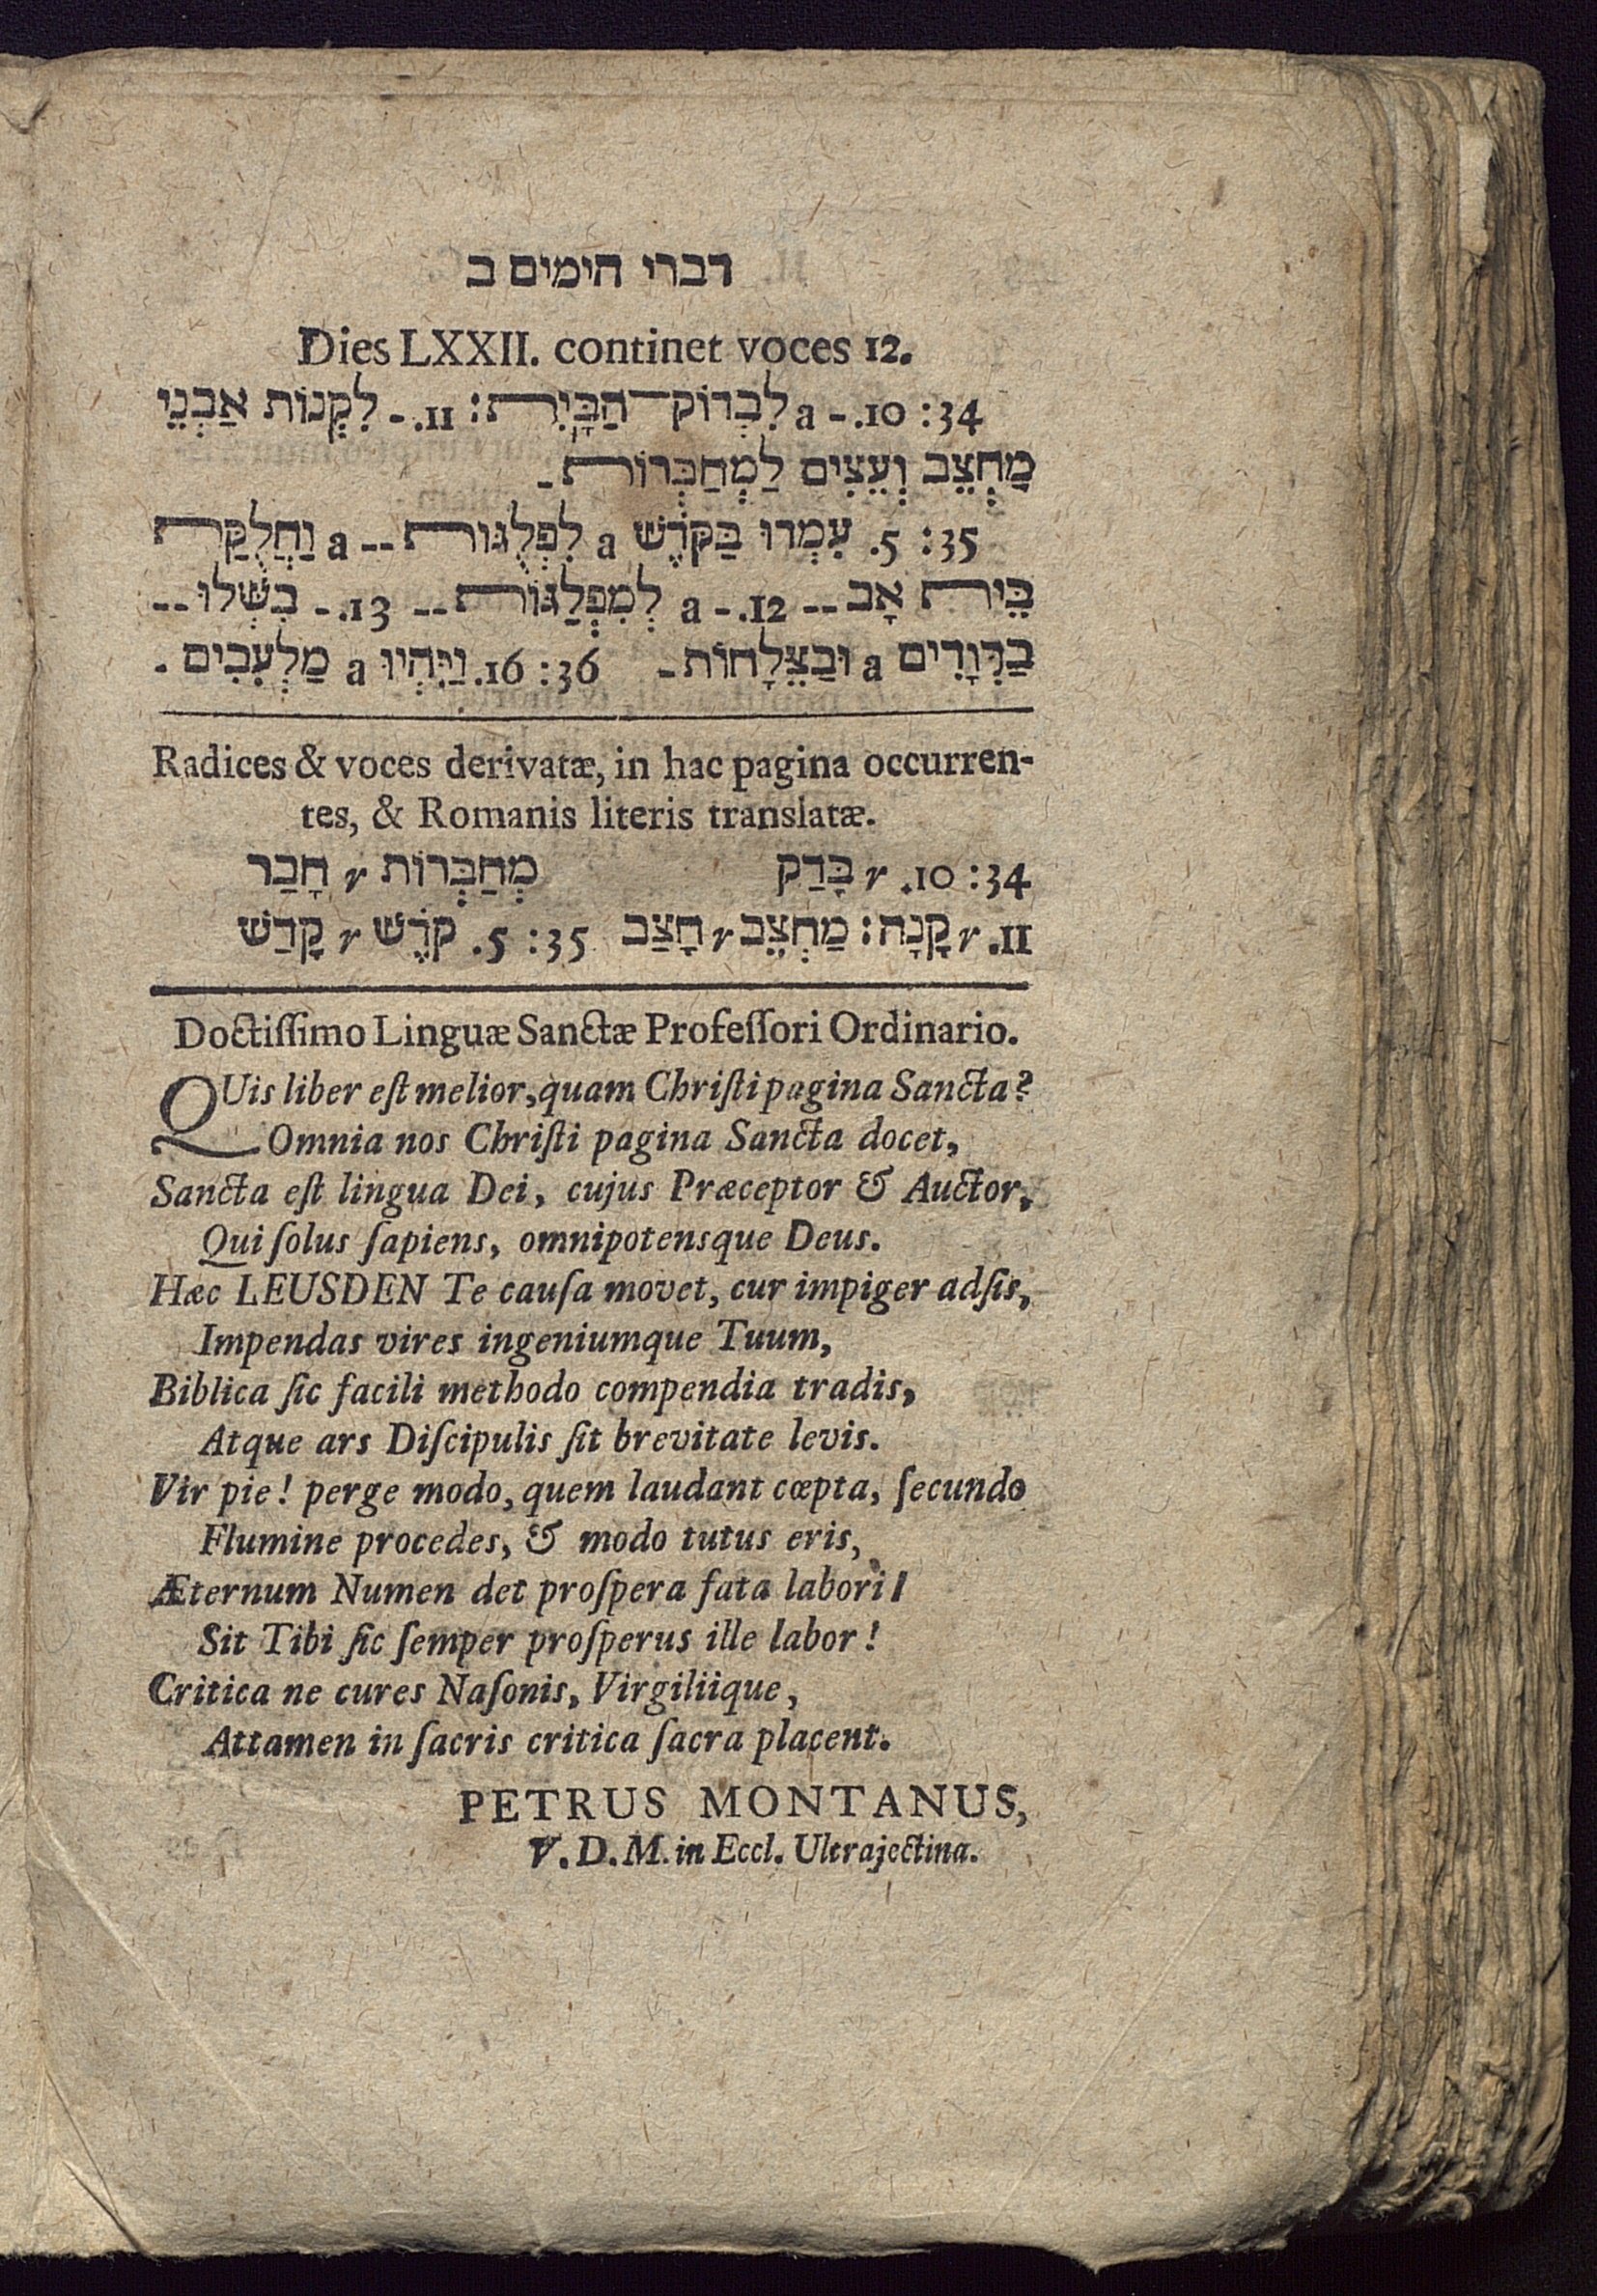 דברי הימים ב
Dies LXXII. continet voces 12.
34: 10. - a לִבְדּוֹק הַבָּיִת: 11. - לִקְנוֹת אַבְנֵי
מַחְצֵב וְעֵצִים לַמְחַבְּרוֹת -
35: 5. עִמְדוּ בַּקֹּדֶשׁ a לִפְלֻגּוֹת -- a וַחֲלֻקַּת
בֵּית אָב -- 12. - a לְמִפְלַגּוֹת -- 13. - בִּשְּׁלוּ --
בַּדְּוָדִים a וּבַצֵּלָחוֹת - 36: 16. וַיִּהְיוּ a מַלְעִבִים .
Radices & voces derivatæ, in hac pagina occurren-
tes, & Romanis literis translatæ.
34: 10. r בָּדַק מְחַבְּרוֹת r חָבַר
11. r קָנָה: מַחְצֵב r חָצַב 35: 5. קֹדֶשׁ r קָדַשׁ
Doctiſſimo Linguæ Sanctæ Profeſſori Ordinario.
QUis liber eſt melior, quam Chriſti pagina Sancta?
Omnia nos Chriſti pagina Sancta docet,
Sancta eſt lingua Dei, cujus Præceptor & Auctor,
Qui ſolus ſapiens, omnipotensque Deus.
Hæc LEUSDEN Te cauſa movet, cur impiger adſis,
Impendas vires ingeniumque Tuum,
Biblica ſic facili methodo compendia tradis,
Atque ars Diſcipulis ſit brevitate levis.
Vir pie! perge modo, quem laudant cœpta, ſecundo
Flumine procedes, & modo tutus eris,
Æternum Numen det proſpera fata labori!
Sit Tibi ſic ſemper proſperus ille labor!
Critica ne cures Naſonis, Virgiliique,
Attamen in ſacris critica ſacra placent.
PETRUS MONTANUS,
V. D. M. in Eccl. Ultrajectina.